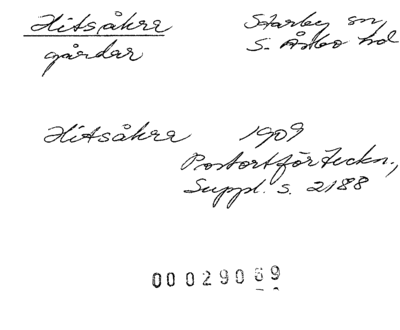 Hitsåkra
Starby sn,
gårdar
S. Åsbo hd
Hitsåkra 1909
Postortförteckn.,
Suppl. s. 2188
00029069